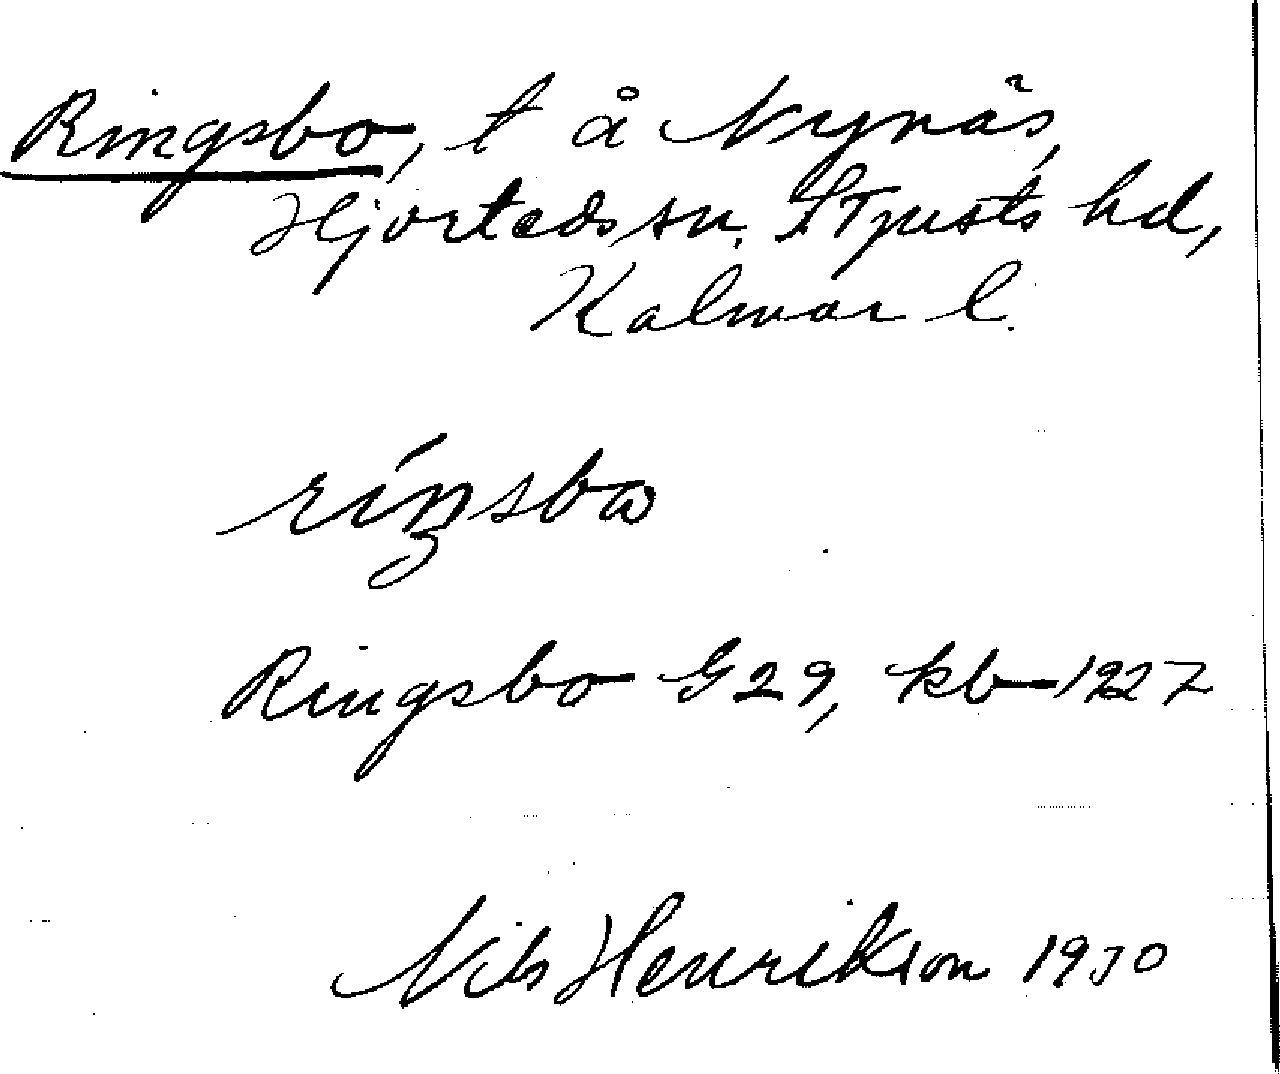 Ringsbo, t å Nynäs,
Hjorteds sn. S Tjusts hd,
Kalmar l.
ríŋsbω
Ringsbo G29, kb 1927
Nils Henrikson 1930